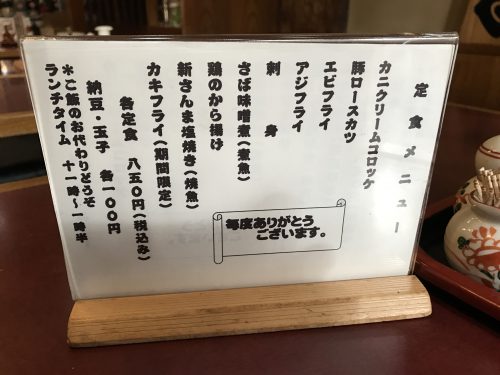 定食メニュー
カニクリームコロッケ
豚ロースカツ
エビフライ
アジフライ
刺身
さば味噌煮(煮魚)
鶏のから揚げ
新さんま塩焼き(焼魚)
カキフライ(期間限定)
各定食 八五〇円(税込み)
納豆・玉子 各一〇〇円
*ご飯のお代わりどうぞ
ランチタイム 十一時〜一時半
毎度ありがとう
ございます。